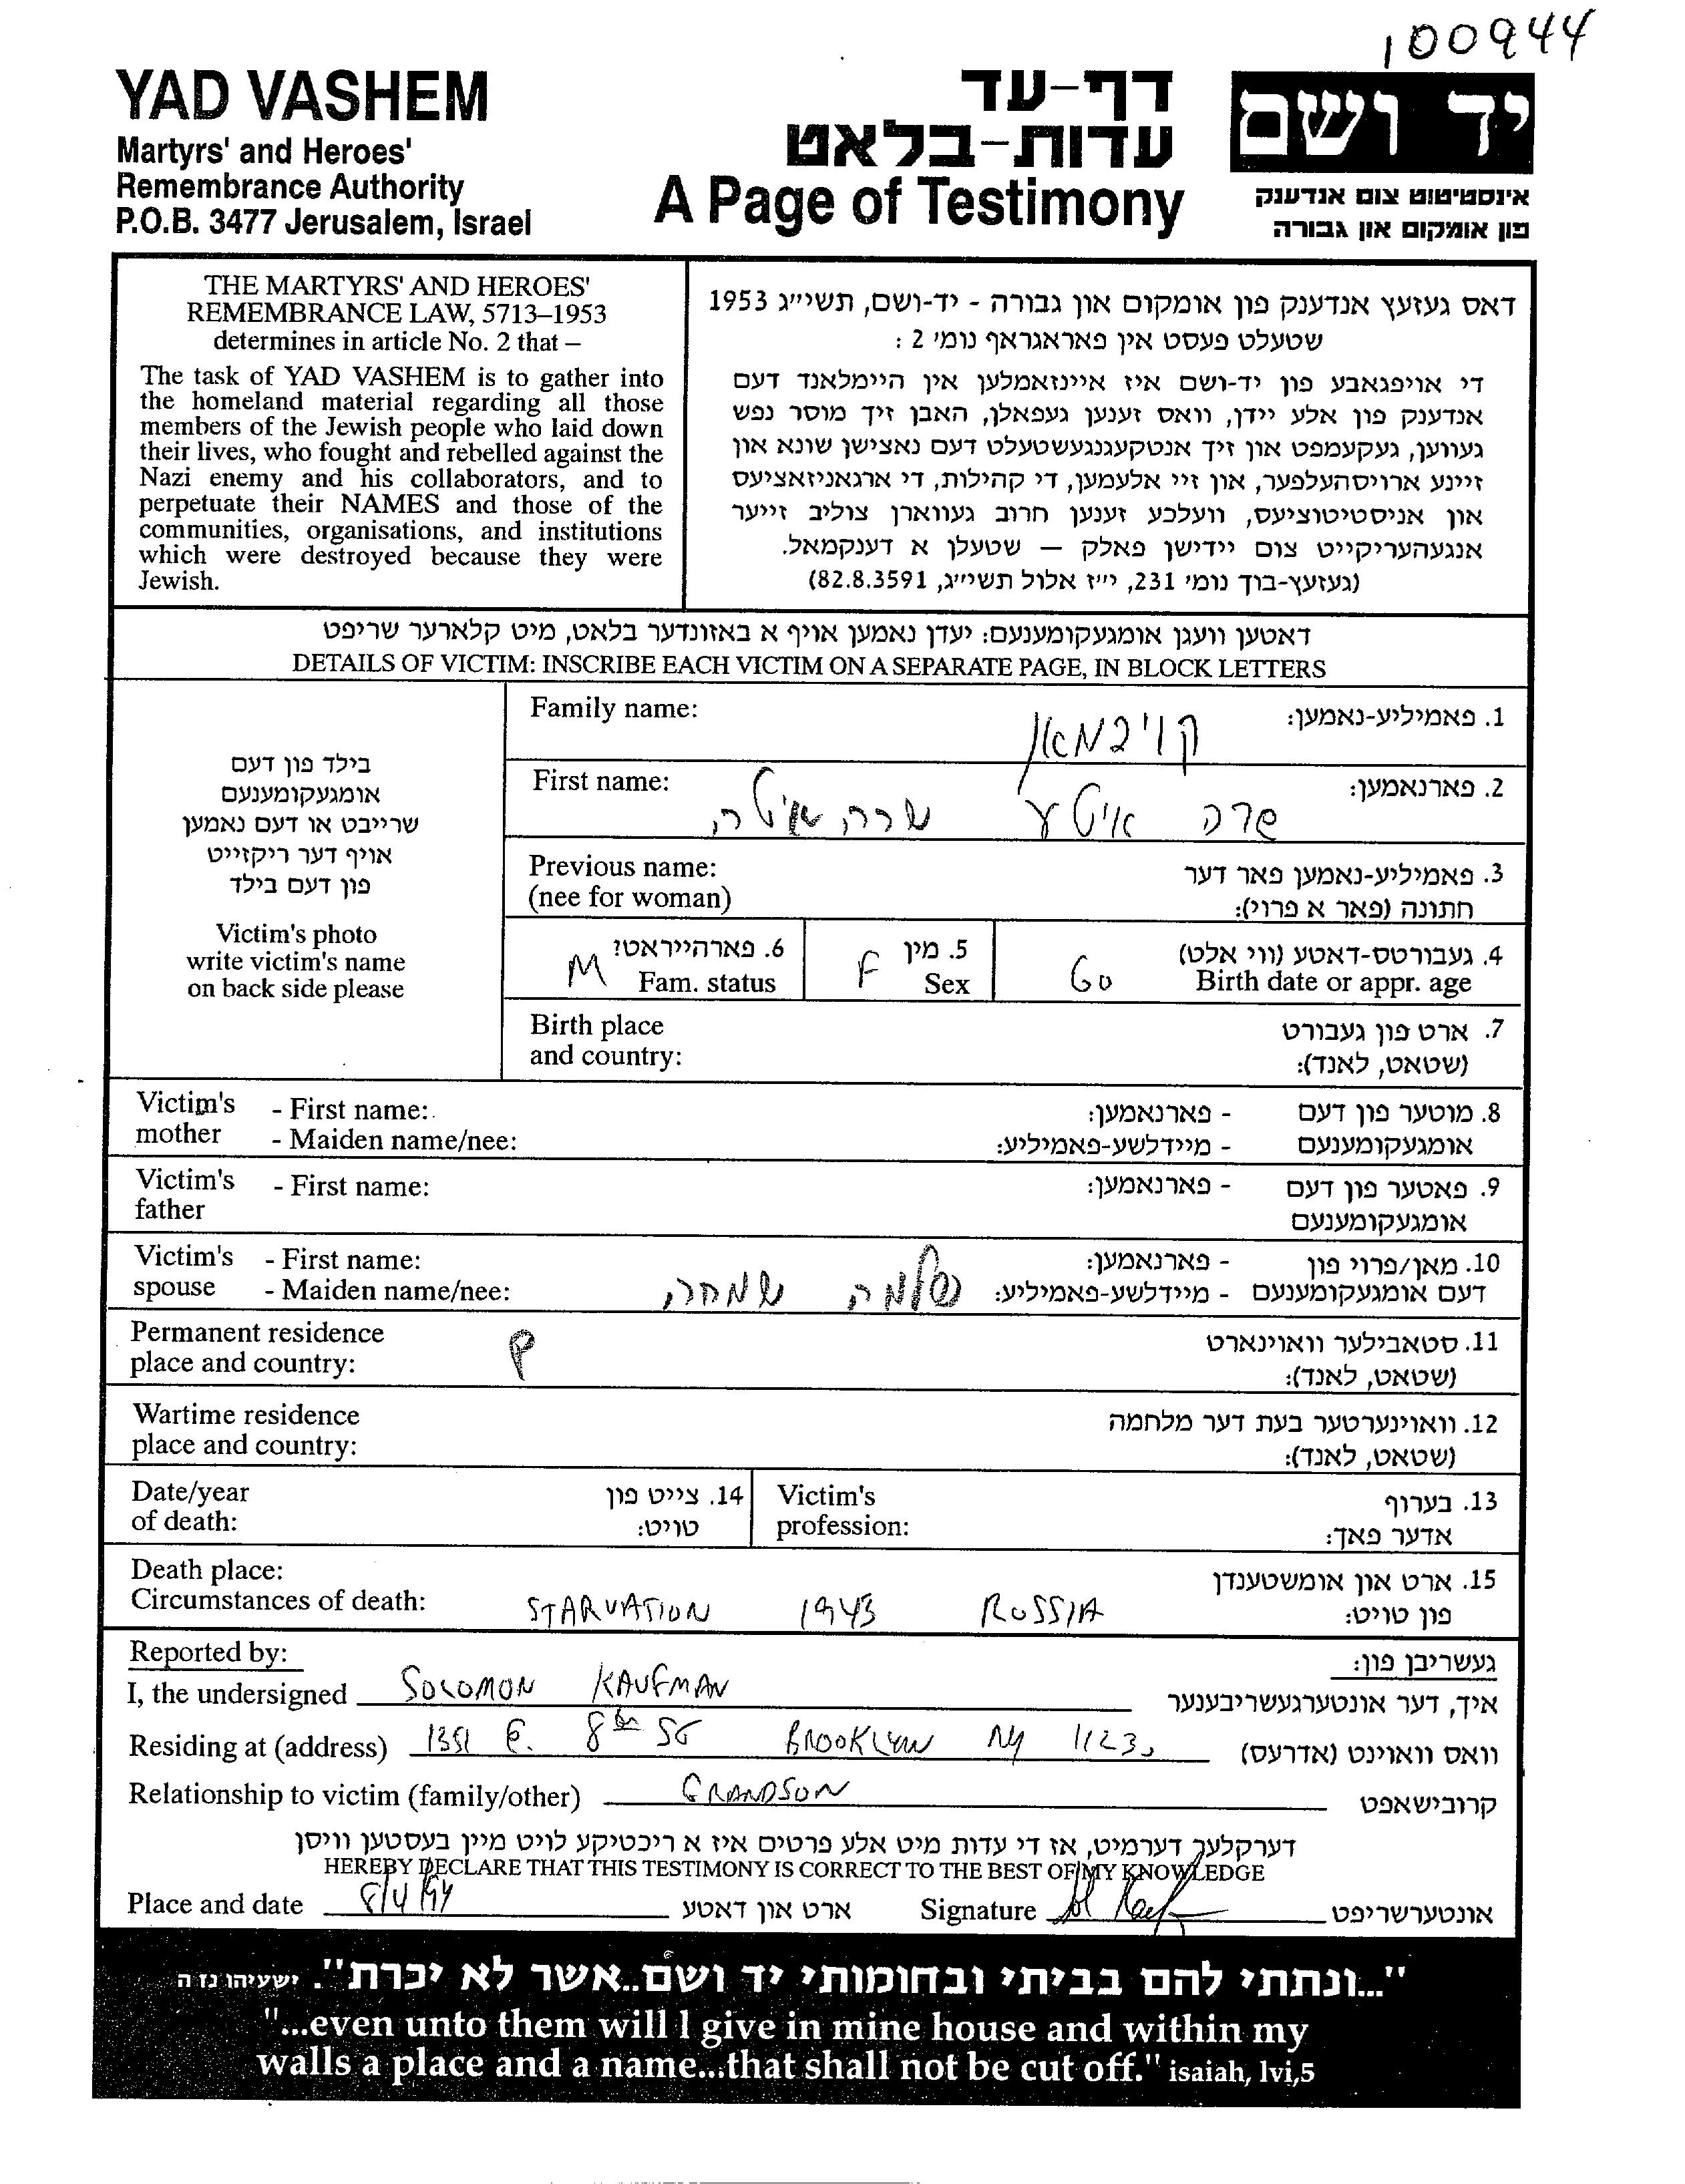 100944
YAD VASHEM
Martyrs' and Heroes'
Remembrance Authority
P.O.B. 3477 Jerusalem, Israel
דף-עד
עדות-בלאט
A Page of Testimony
יד ושם
אינסטיטוט צום אנדענק
פון אומקום און גבורה
THE MARTYRS' AND HEROES'
REMEMBRANCE LAW, 5713–1953
determines in article No. 2 that –
The task of YAD VASHEM is to gather into
the homeland material regarding all those
members of the Jewish people who laid down
their lives, who fought and rebelled against the
Nazi enemy and his collaborators, and to
perpetuate their NAMES and those of the
communities, organisations, and institutions
which were destroyed because they were
Jewish.
דאס געזעץ אנדענק פון אומקום און גבורה - יד-ושם, תשי״ג 1953
שטעלט פעסט אין פאראגראף נומ׳ 2 :
די אויפגאבע פון יד-ושם איז איינזאמלען אין היימלאנד דעם
אנדענק פון אלע יידן, וואס זענען געפאלן, האבן זיך מוסר נפש
געווען, געקעמפט און זיך אנטקעגנגעשטעלט דעם נאצישן שונא און
זיינע ארויסהעלפער, און זיי אלעמען, די קהילות, די ארגאניזאציעס
און אניסטיטוציעס, וועלכע זענען חרוב געווארן צוליב זייער
אנגעהעריקייט צום יידישן פאלק — שטעלן א דענקמאל.
(געזעץ-בוך נומ׳ 231, י״ז אלול תשי״ג, 82.8.3591)
דאטען וועגן אומגעקומענעם: יעדן נאמען אויף א באזונדער בלאט, מיט קלארער שריפט
DETAILS OF VICTIM: INSCRIBE EACH VICTIM ON A SEPARATE PAGE, IN BLOCK LETTERS
בילד פון דעם
אומגעקומענעם
שרייבט או דעם נאמען
אויף דער ריקזייט
פון דעם בילד
Victim's photo
write victim's name
on back side please
Family name: 1. פאמיליע-נאמען:
First name: שרה איטע שרה איטה 2. פארנאמען:
Previous name: 3. פאמיליע-נאמען פאר דער
(nee for woman) חתונה (פאר א פרוי):
6. פארהייראט? M Fam. status
5. מין F Sex
4. געבורטס-דאטע (ווי אלט) 60 Birth date or appr. age
Birth place 7. ארט פון געבורט
and country: (שטאט, לאנד):
Victim's - First name: - פארנאמען: 8. מוטער פון דעם
mother - Maiden name/nee: - מיידלשע-פאמיליע: אומגעקומענעם
Victim's - First name: - פארנאמען: 9. פאטער פון דעם
father אומגעקומענעם
Victim's - First name: - פארנאמען: 10. מאן/פרוי פון
spouse - Maiden name/nee: שלמה שמחה - מיידלשע-פאמיליע: דעם אומגעקומענעם
Permanent residence 11. סטאבילער וואוינארט
place and country: (שטאט, לאנד):
Wartime residence 12. וואוינערטער בעת דער מלחמה
place and country: (שטאט, לאנד):
Date/year 14. צייט פון
of death: טויט:
Victim's 13. בערוף
profession: אדער פאך:
Death place: 15. ארט און אומשטענדן
Circumstances of death: STARVATION 1943 RUSSIA פון טויט:
Reported by: געשריבן פון:
I, the undersigned SOLOMON KAUFMAN איך, דער אונטערגעשריבענער
Residing at (address) 1351 E. 8th ST BROOKLYN NY 1123 וואס וואוינט (אדרעס)
Relationship to victim (family/other) GRANDSON קרובישאפט
דערקלער דערמיט, אז די עדות מיט אלע פרטים איז א ריכטיקע לויט מיין בעסטען וויסן
HEREBY DECLARE THAT THIS TESTIMONY IS CORRECT TO THE BEST OF MY KNOWLEDGE
Place and date 8/4/94 ארט און דאטע Signature אונטערשריפט
"...ונתתי להם בביתי ובחומותי יד ושם..אשר לא יכרת". ישעיהו נז ה
"...even unto them will I give in mine house and within my
walls a place and a name...that shall not be cut off." isaiah, lvi,5